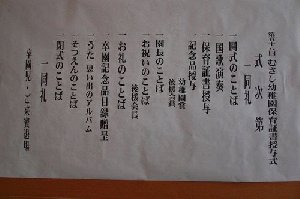 第六十一回 むさし幼稚園保育証書授与式
式次第
一同礼
一 開式のことば
一 国歌演奏
一 保育証書授与
記念品授与
幼稚園賞
後援会長
一 園長のことば
一 お祝いのことば
後援会長
一 お礼のことば
一 卒園記念品目録贈呈
一 うた 思い出のアルバム
一 そつえんのことば
一 閉式のことば
一同礼
卒園児・ご来賓退場